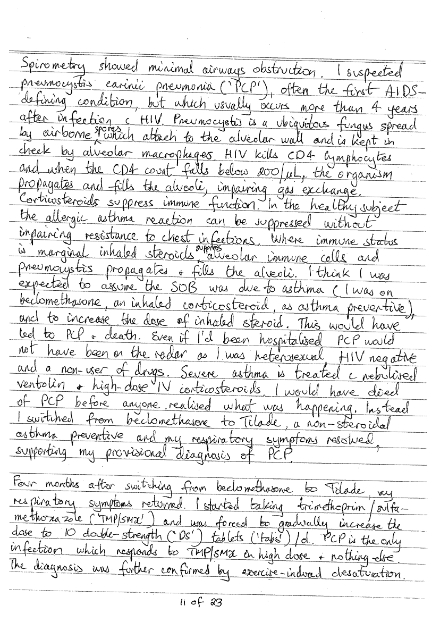 Spirometry showed minimal airways obstruction. I suspected
pneumocystis carinii pneumonia ('PCP'), often the first AIDS-
defining condition, but which usually occurs more than 4 years
after infection c HIV. Pneumocystis is a ubiquitous fungus spread
by airborne spores which attach to the alveolar wall and is kept in
check by alveolar macrophages. HIV kills CD4 lymphocytes
and when the CD4 count falls below 200/µL, the organism
propagates and fills the alveoli, impairing gas exchange.
Corticosteroids suppress immune function. In the healthy subject
the allergic asthma reaction can be suppressed without
impairing resistance to chest infections. Where immune status
is marginal inhaled steroids suppress alveolar immune cells and
pneumocystis propagates + fills the alveoli. I think I was
expected to assume the SOB was due to asthma (I was on
beclomethasone, an inhaled corticosteroid, as asthma preventive),
and to increase the dose of inhaled steroid. This would have
led to PCP + death. Even if I'd been hospitalised PCP would
not have been on the radar as I was heterosexual, HIV negative
and a non-user of drugs. Severe asthma is treated c nebulised
ventolin + high-dose IV corticosteroids. I would have died
of PCP before anyone realised what was happening. Instead
I switched from beclomethasone to Tilade, a non-steroidal
asthma preventive and my respiratory symptoms resolved,
supporting my provisional diagnosis of PCP
Four months after switching from beclomethasone to Tilade, my
respiratory symptoms returned. I started taking trimethoprim/sulfa-
methoxazole ('TMP/SMX') and was forced to gradually increase the
dose to 10 double-strength ('DS') tablets ('tabs')/d. PCP is the only
infection which responds to TMP/SMX in high dose + nothing else
The diagnosis was further confirmed by exercise-induced desaturation.
11 of 23